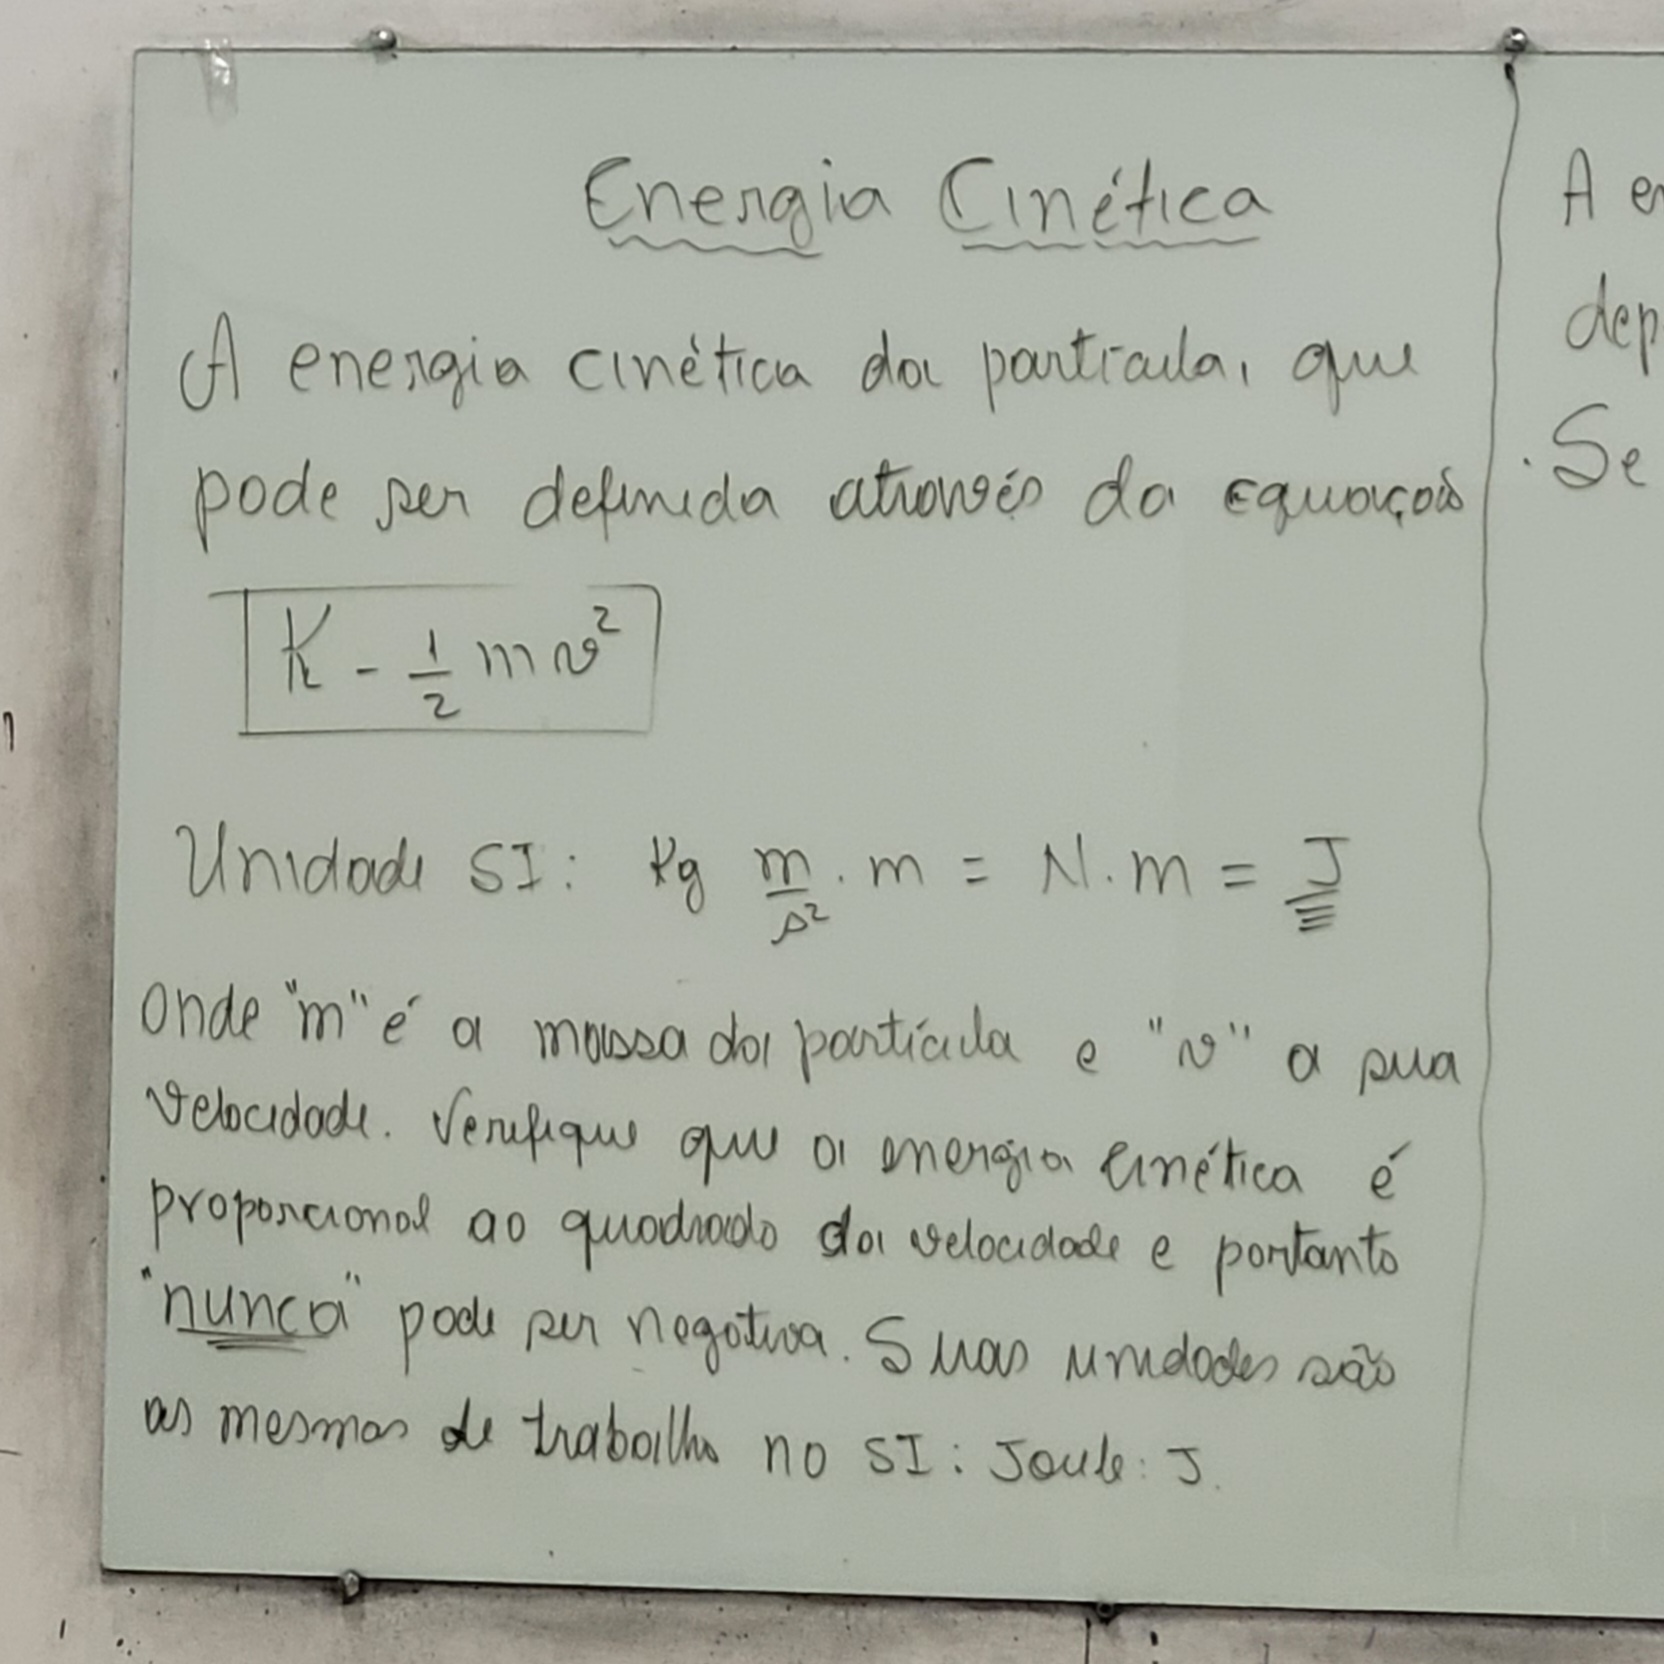 Energia Cinética
A energia cinética da partícula, que
pode ser definida através da equação
K - 1/2 mv²
Unidade SI: Kg m/s² . m = N.m = J
onde "m" é a massa da partícula e "v" a sua
velocidade. Verifique que a energia cinética é
proporcional ao quadrado da velocidade e portanto
"nunca" pode ser negativa. Suas unidades são
as mesmas de trabalho no SI: Joule: J.
A
dep
. Se